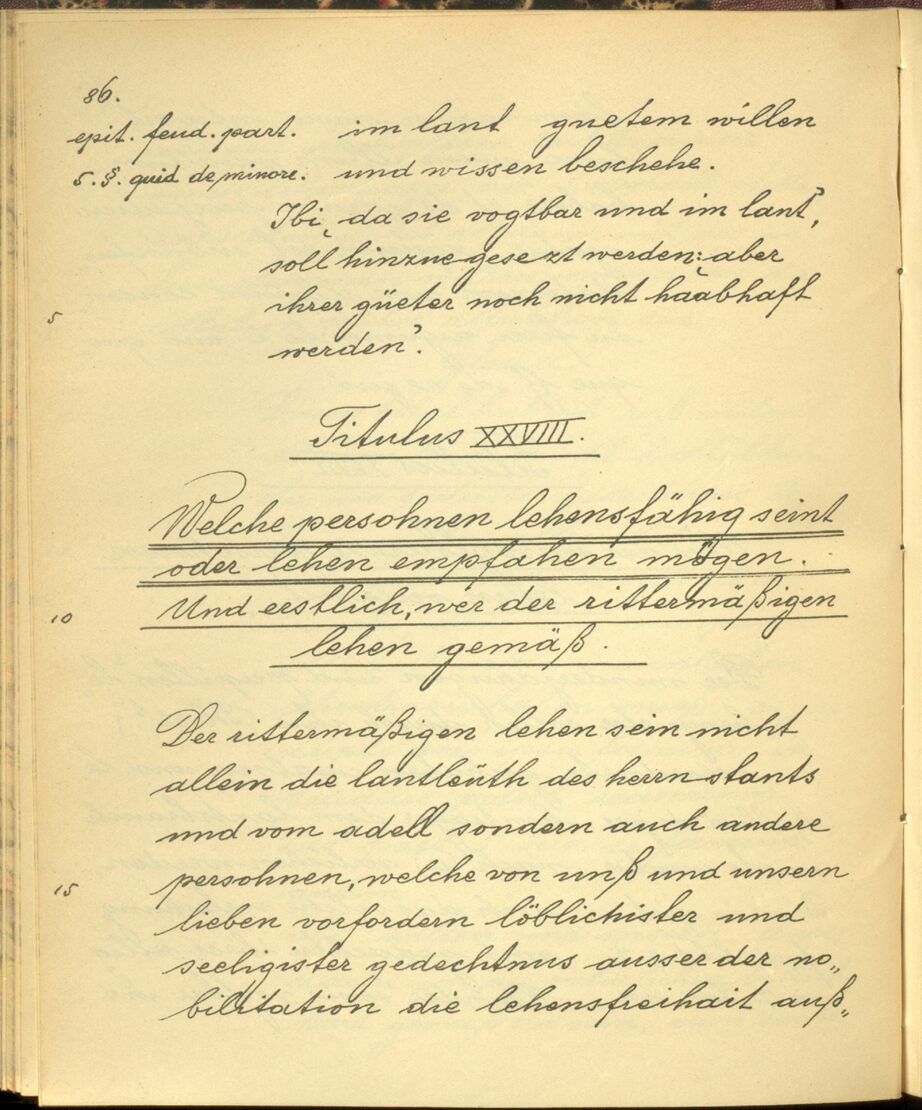 86.
epit. feud. part. im lant guetem willen
5. §. quid de minore. und wissen beschehe.
Ibi ‚da sie vogtbar und im lant’,
soll hinzue gesezt werden: ‚aber
ihrer güeter noch nicht haabhaft
5
werden’.
Titulus XXVIII.
Welche persohnen lehensfähig seint
oder lehen empfahen mögen.
Und erstlich, wer der rittermäßigen
10
lehen gemäß.
Der rittermäßigen lehen sein nicht
allein die lantleüth des herrnstants
und vom adell sondern auch andere
persohnen, welche von unß und unsern
15
lieben vorfordern löblichister und
seeligister gedechtnus ausser der no„
bilitation die lehensfreihait auß„